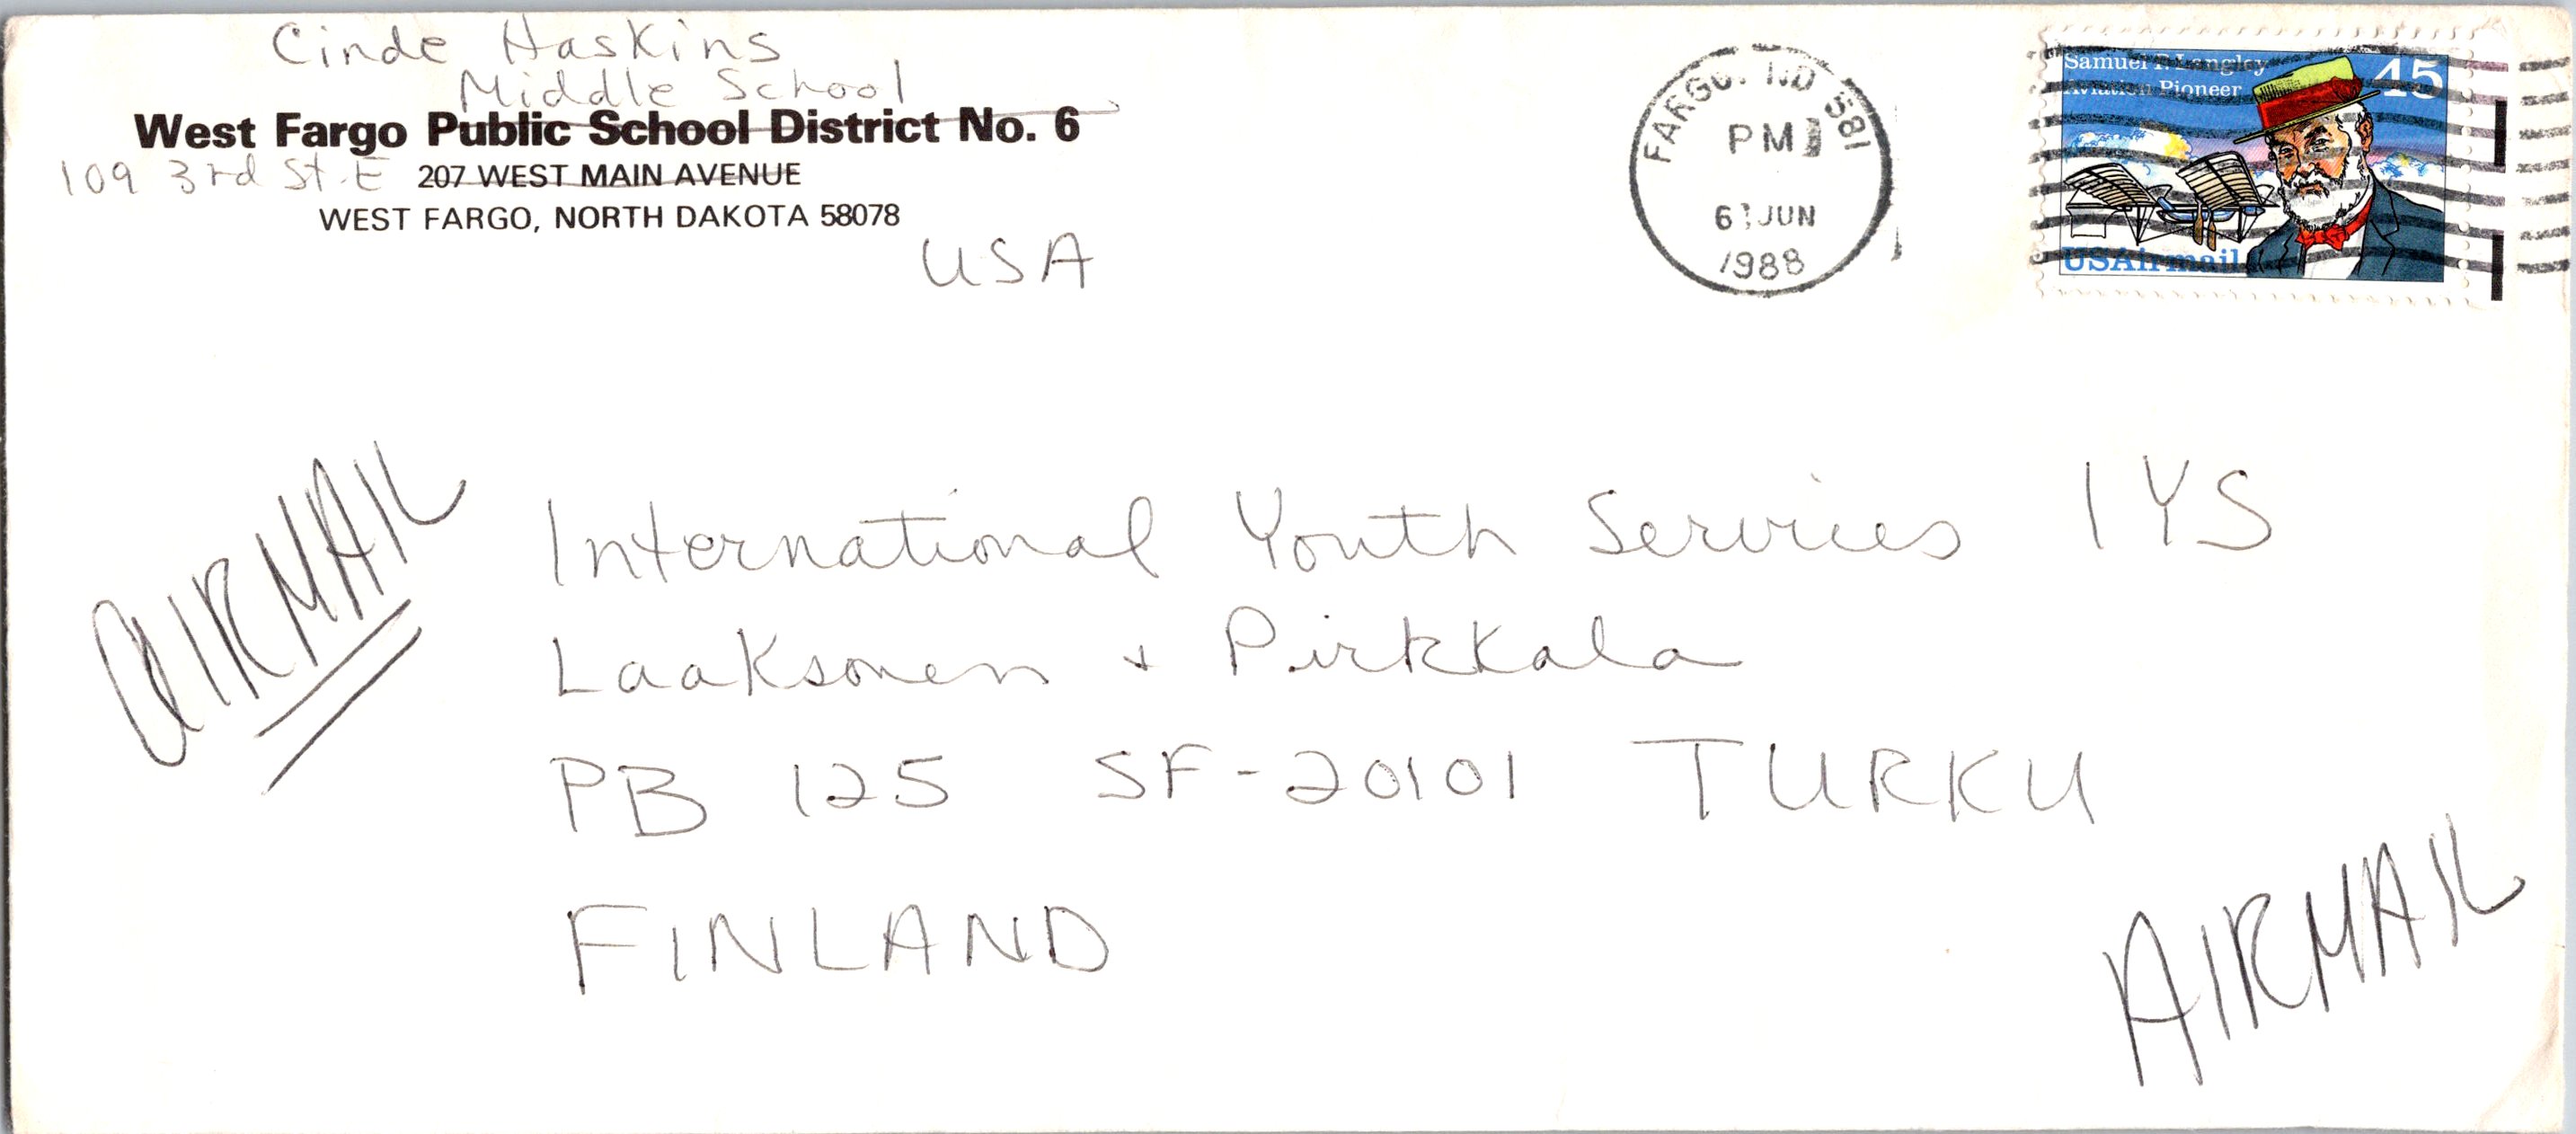 Cinde Haskins
Middle School
West Fargo Public School District No. 6
109 3rd St. E 207 WEST MAIN AVENUE
WEST FARGO, NORTH DAKOTA 58078
USA
FARGO, ND 581
PM
6 JUN
1988
Samuel P. Langley
Aviation Pioneer
45
USAirmail
AIRMAIL
International Youth Services IYS
Laaksonen + Pirkkala
PB 125 SF-20101 TURKU
FINLAND
AIRMAIL